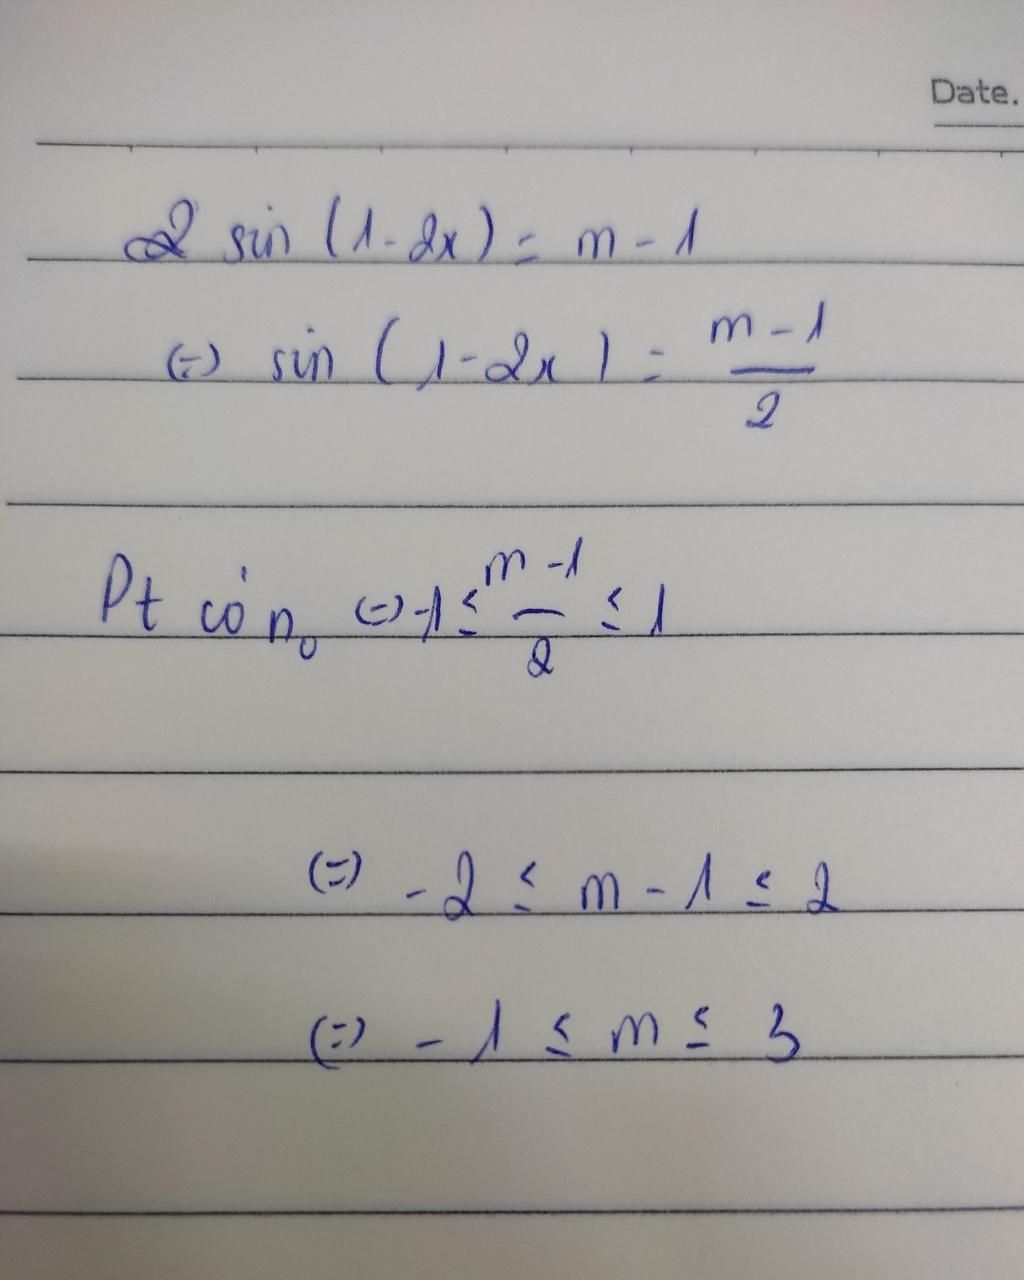 Date.
2 sin (1-2x) = m - 1
(=) sin (1-2x) = \frac{m-1}{2}
Pt có n₀ (=) -1 ≤ \frac{m-1}{2} ≤ 1
(=) -2 ≤ m - 1 ≤ 2
(=) -1 ≤ m ≤ 3